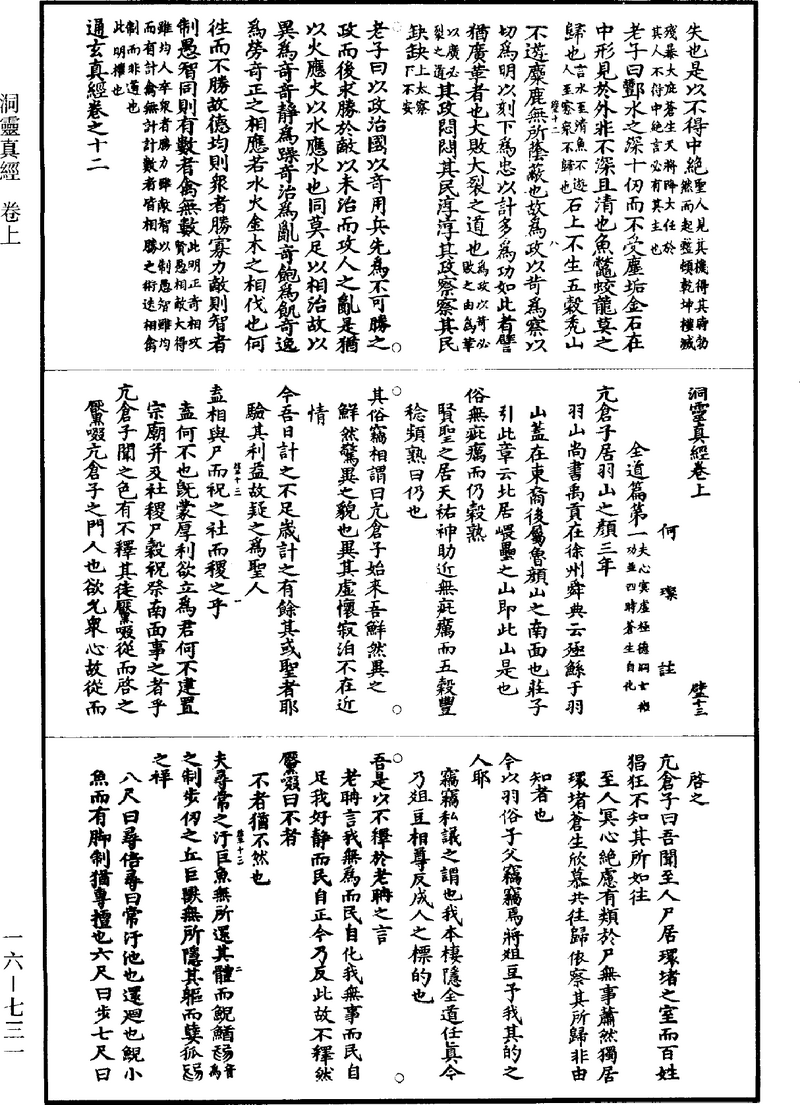 失也是以不得中絶聖人見其機得其時勃然而起整頓乾坤權滅
殘暴大庇蒼生天將降大任於其人不得中絶言必有其主也
老子曰酆水之深十仞而不受塵垢金石在
中形見於外非不深且清也魚鼈蛟龍莫之
歸也言水至清魚不遊人至察衆不歸也石上不生五穀禿山
不遊麋鹿無所蔭蔽也故爲政以苛爲察以
切爲明以刻下爲忠以計多爲功如此者譬
猶廣革者也大敗大裂之道也爲政以苛必敗之由爲革
以廣必裂之道其政悶悶其民淳淳其政察察其民
缺缺上太察下不安
老子曰以政治國以奇用兵先爲不可勝之
政而後求勝於敵以未治而攻人之亂是猶
以火應火以水應水也同莫足以相治故以
異爲奇奇靜爲躁奇治爲亂奇飽爲飢奇逸
爲勞奇正之相應若水火金木之相伐也何
往而不勝故德均則衆者勝寡力敵則智者
制愚智同則有數者禽無數此明正奇相攻賢愚相敵大得
雖均人卒衆者勝力雖敵智以制愚智雖均
而有計禽無計計數者皆相勝之術逺相禽
制而非道也
此明權也
通玄真經卷之十二
洞靈真經卷上
壁十三
何璨註
全道篇第一夫心冥虛極德侔玄機功並四時蒼生自化
亢倉子居羽山之顏三年
羽山尚書禹貢在徐州舜典云殛鯀于羽
山蓋在東裔後屬魯顏山之南面也莊子
引此章云北居嵔壘之山即此山是也
俗無疵癘而仍穀熟
賢聖之居天祐神助近無疵癘而五穀豐
稔頻熟曰仍也
其俗竊相謂曰亢倉子始來吾鮮然異之
鮮然驚異之貌也異其虛懷寂泊不在近
情
今吾日計之不足歲計之有餘其或聖者耶
驗其利益故疑之爲聖人
盍相與尸而祝之社而稷之乎
盍何不也旣蒙厚利欲立爲君何不建置
宗廟并及社稷尸穀祝祭南面事之者乎
亢倉子聞之色有不釋其徒𪒠啜從而啓之
𪒠啜亢倉子之門人也欲允衆心故從而
啓之
亢倉子曰吾聞至人尸居環堵之室而百姓
猖狂不知其所如往
至人冥心絶慮有類於尸無事蕭然獨居
環堵蒼生欣慕共往歸依察其所歸非由
知者也
今以羽俗子父竊竊焉將俎豆予我其的之
人耶
竊竊私議之謂也我本棲隱全道任真今
乃俎豆相尊反成人之標的也
吾是以不釋於老聃之言
老聃言我無爲而民自化我無事而民自
足我好靜而民自正今乃反此故不釋然
𪒠啜曰不者
不者猶不然也
夫尋常之汙巨魚無所還其體而鯢鰌音爲
之制步仞之丘巨獸無所隱其軀而㜸狐爲
之祥
八尺曰尋倍尋曰常汙池也還迴也鯢小
魚而有脚制猶專擅也六尺曰步七尺曰
洞靈真經　卷上
一六—七三一